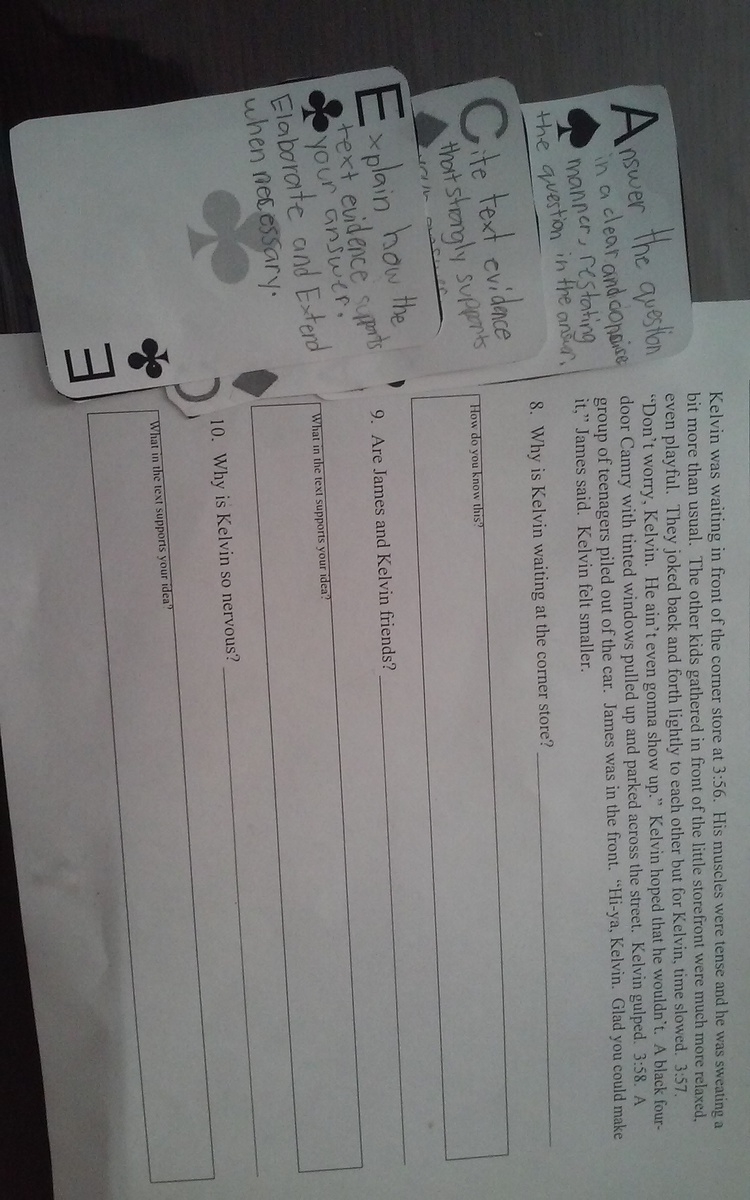 Answer the question
in a clear and concise
manner, restating
the question in the answer.
Cite text evidence
that strongly supports
your answer
Explain how the
text evidence supports
your answer.
Elaborate and Extend
when necessary.
E
C
Kelvin was waiting in front of the corner store at 3:56. His muscles were tense and he was sweating a
bit more than usual. The other kids gathered in front of the little storefront were much more relaxed,
even playful. They joked back and forth lightly to each other but for Kelvin, time slowed. 3:57.
“Don’t worry, Kelvin. He ain’t even gonna show up.” Kelvin hoped that he wouldn’t. A black four-
door Camry with tinted windows pulled up and parked across the street. Kelvin gulped. 3:58. A
group of teenagers piled out of the car. James was in the front. “Hi-ya, Kelvin. Glad you could make
it,” James said. Kelvin felt smaller.
8. Why is Kelvin waiting at the corner store?
How do you know this?
9. Are James and Kelvin friends?
What in the text supports your idea?
10. Why is Kelvin so nervous?
What in the text supports your idea?